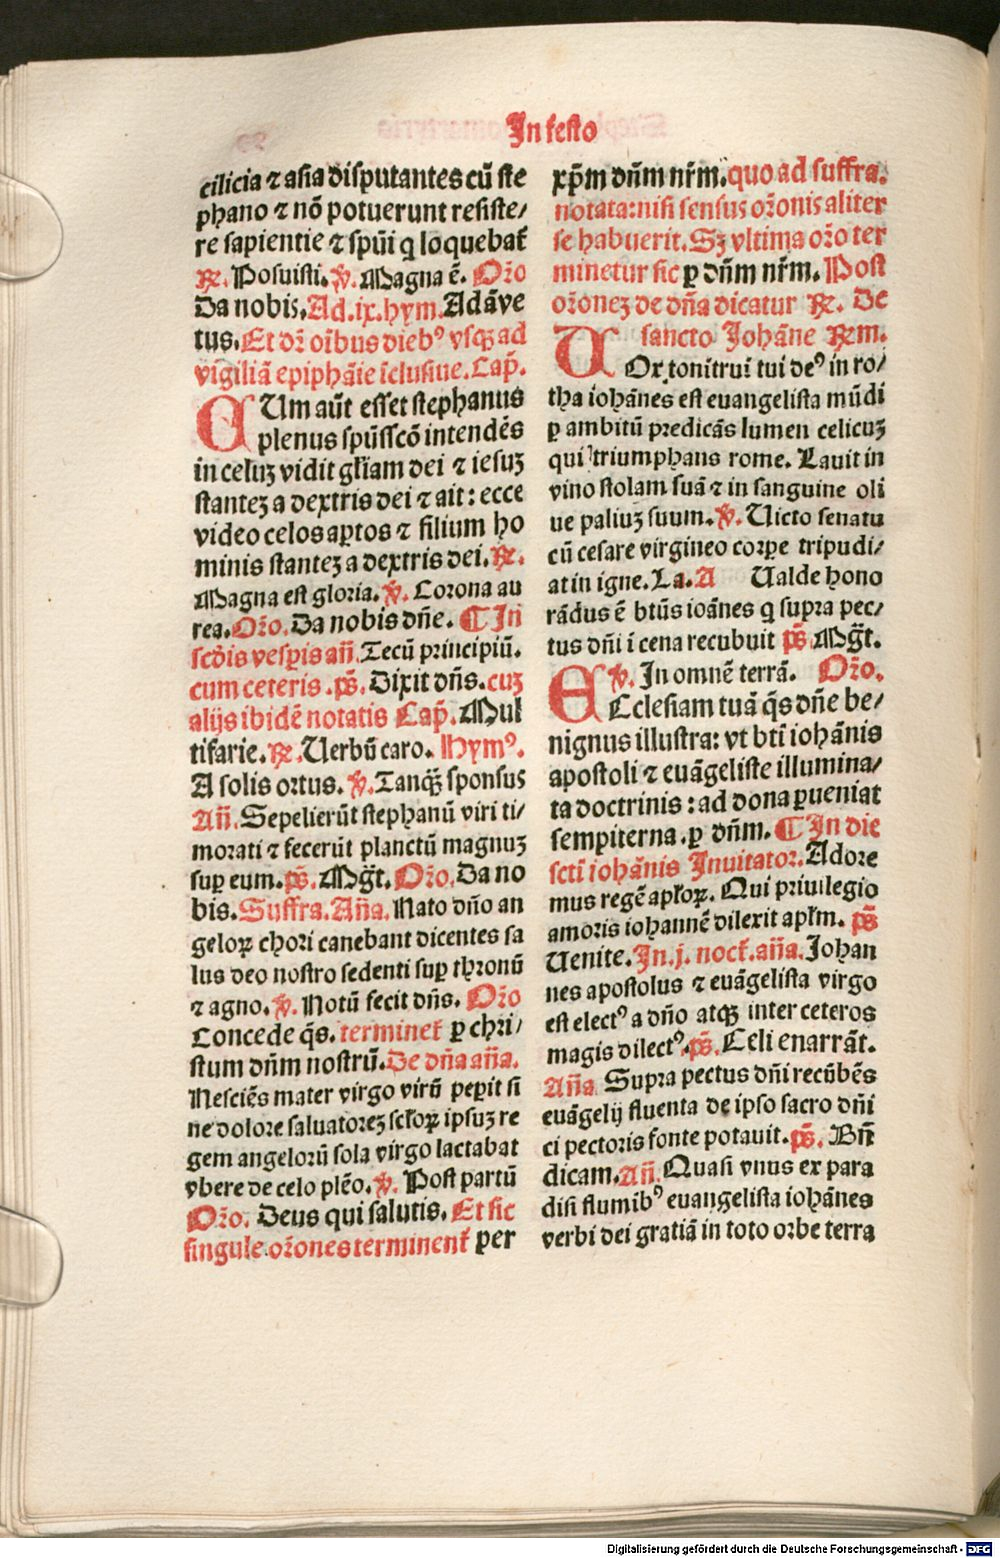 In festo
cilicia ⁊ asia disputantes cū ste
phano ⁊ nō potuerunt resiste/
re sapientie ⁊ spūi q̇ loquebat᷑
℟. Posuisti. ℣. Magna ē. Oŕo
Da nobis. Ad .ix. hym. Ad āve
tus. Et dŕ oībus dieb⁹ vsqꝫ ad
vigiliā epiphāie īclusiue. Cap̄.
CUm aūt esset stephanus
plenus spūscō intendēs
in celuꝫ vidit gl̄iam dei ⁊ iesuꝫ
stanteꝫ a dextris dei ⁊ ait: ecce
video celos aꝑtos ⁊ filium ho
minis stanteꝫ a dextris dei. ℟.
Magna est gloria. ℣. Corona au
rea. Oŕo. Da nobis dn̄e. ¶ In
scd̄is vesꝑis an̄. Tecū principiū.
cum ceteris. ps̄. Dixit dn̄s. cuꝫ
alijs ibidē notatis Cap̄. Mul
tifarie. ℟. Uerbū caro. Hym⁹.
A solis ortus. ℣. Tanqꝫ̄ sponsus
An̄. Sepelierūt stephanū viri ti/
morati ⁊ fecerūt planctū magnuꝫ
suꝑ eum. ps̄. Mḡt. Oŕo. Da no
bis. Suffra. An̄a. Nato dn̄o an
geloꝝ chori canebant dicentes sa
lus deo nostro sedenti suꝑ thronū
⁊ agno. ℣. Notū fecit dn̄s. Oŕo
Concede q̄s. terminet᷑ ꝑ chri/
stum dn̄m nostrū. De dn̄a an̄a.
Nesciēs mater virgo virū peꝑit si
ne dolore saluatoreꝫ scl̄oꝝ ipsuꝫ re
gem angelorū sola virgo lactabat
vbere de celo plēo. ℣. Post partū
Oŕo. Deus qui salutis. Et sic
singule oŕones terminent᷑ per
xp̄m dn̄m nr̄m. quo ad suffra.
notata: nisi sensus oŕonis aliter
se habuerit. Sꝫ vltima oŕo ter
minetur sic ꝑ dn̄m nr̄m. Post
oŕoneꝫ de dn̄a dicatur ℟. De
sancto Johāne ℟m.
UOx tonitrui tui de⁹ in ro/
tha iohānes est euangelista mūdi
ꝑ ambitū predicās lumen celicuꝫ
qui triumphans rome. Lauit in
vino stolam suā ⁊ in sanguine oli
ue paliuꝫ suum. ℣. Uicto senatu
cū cesare virgineo corꝑe tripudi/
at in igne. La. A Ualde hono
rādus ē btūs ioānes q̇ supra pec/
tus dn̄i ī cena recubuit ps̄. Mḡt.
℣. In omnē terrā. Oŕo.
ECclesiam tuā q̄s dn̄e be/
nignus illustra: vt bti̅ iohānis
apostoli ⁊ euāgeliste illumina/
ta doctrinis: ad dona ꝑueniat
sempiterna. ꝑ dn̄m. ¶ In die
scti̅ iohānis Inuitator. Adore
mus regē apl̄oꝝ. Qui priuilegio
amoris iohannē dilexit apl̄m. ps̄
Uenite. In .j. noct̄. an̄a. Johan
nes apostolus ⁊ euāgelista virgo
est elect⁹ a dn̄o atqꝫ inter ceteros
magis dilect⁹. ps̄. Celi enarrāt.
An̄a Supra pectus dn̄i recūbēs
euāgelij fluenta de ipso sacro dn̄i
ci pectoris fonte potauit. ps̄. Bn̄
dicam. An̄. Quasi vnus ex para
disi flumib⁹ euangelista iohānes
verbi dei gratiā in toto orbe terra
Digitalisierung gefördert durch die Deutsche Forschungsgemeinschaft - DFG